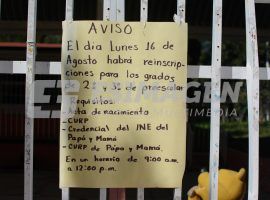 AVISO!
El día Lunes 16 de
Agosto habrá reinscrip-
ciones para los grados
de 2° y 3° de preescolar
Requisitos:
-Acta de nacimiento
-CURP
-Credencial del INE del
Papá y Mamá
-CURP de Papa y Mamá.
En un horario de 9:00 a.m.
a 12:00 p.m.
IMAGEN
MULTIMEDIA